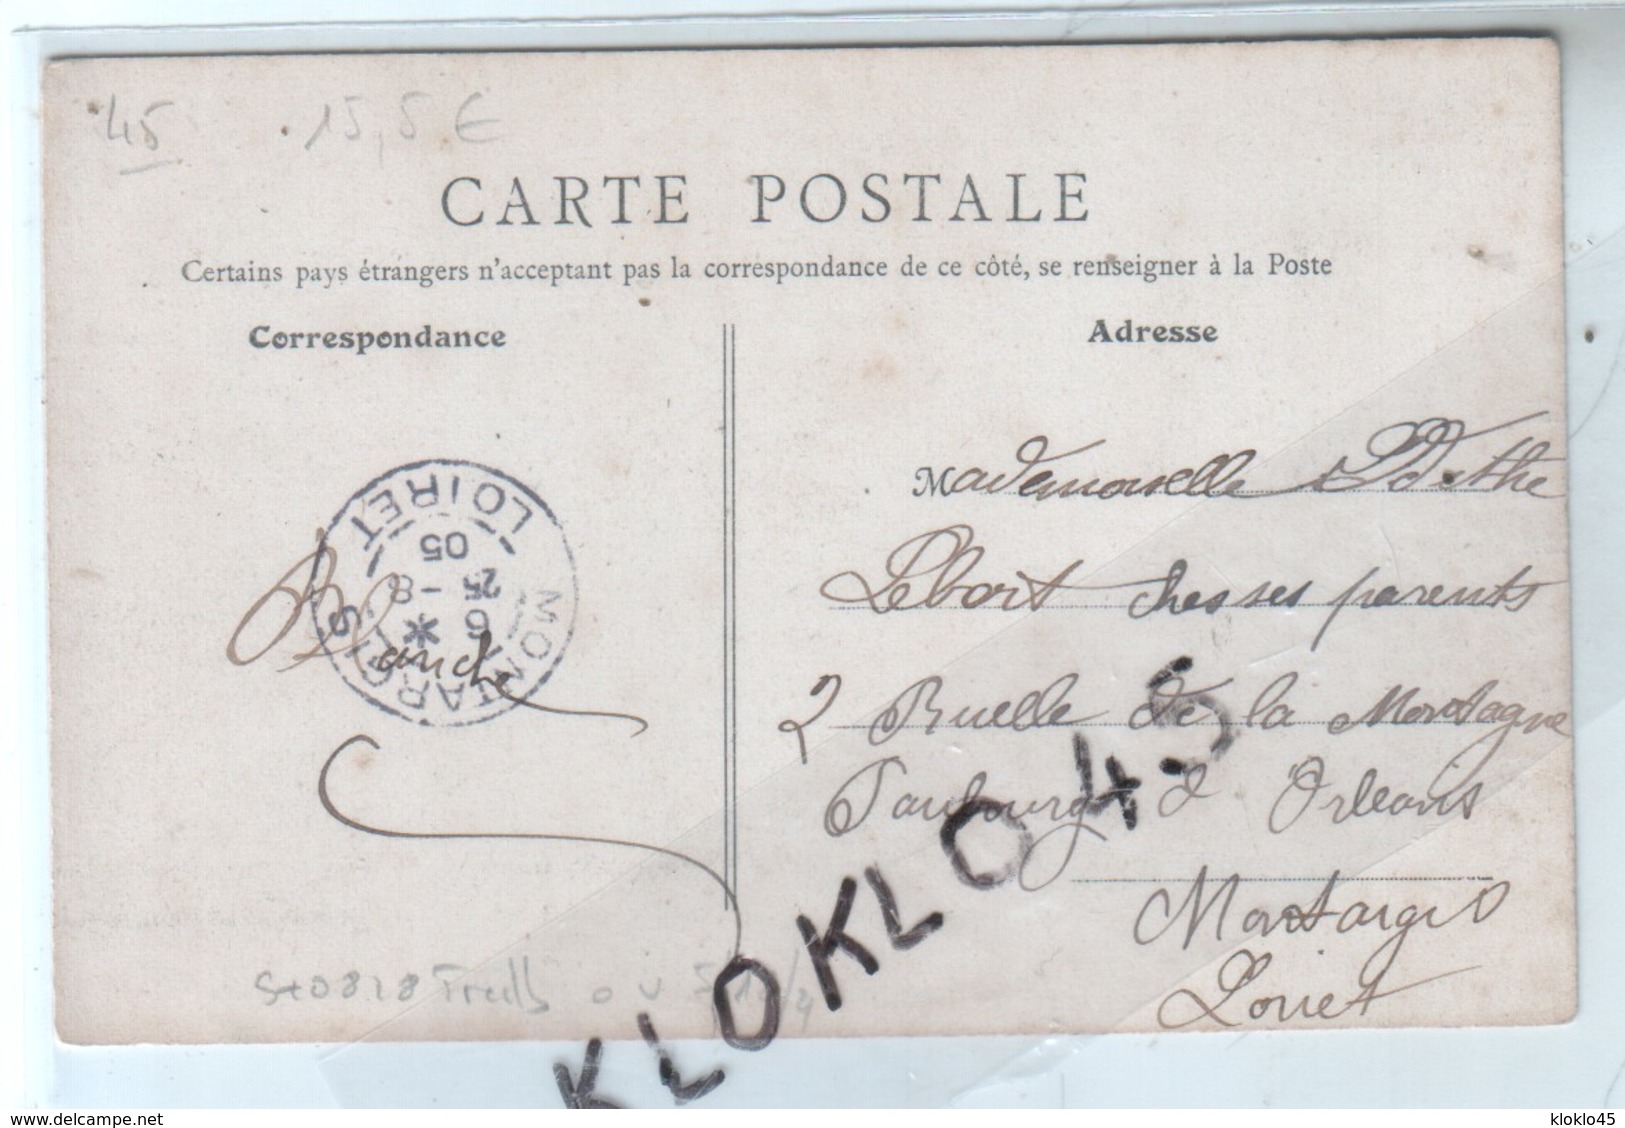 45 15,5 €
CARTE POSTALE
Certains pays étrangers n'acceptant pas la correspondance de ce côté, se renseigner à la Poste
Correspondance
Adresse
MONTARGIS
6
25
-8
05
LOIRET
Blanche
Mademoiselle Odethe
Lebort ches ses parents
2 Ruelle de la Montagne
Faubourg d Orleans
Montargis
Loiret
KLOKLO 45
delcampe.net
kloklo45